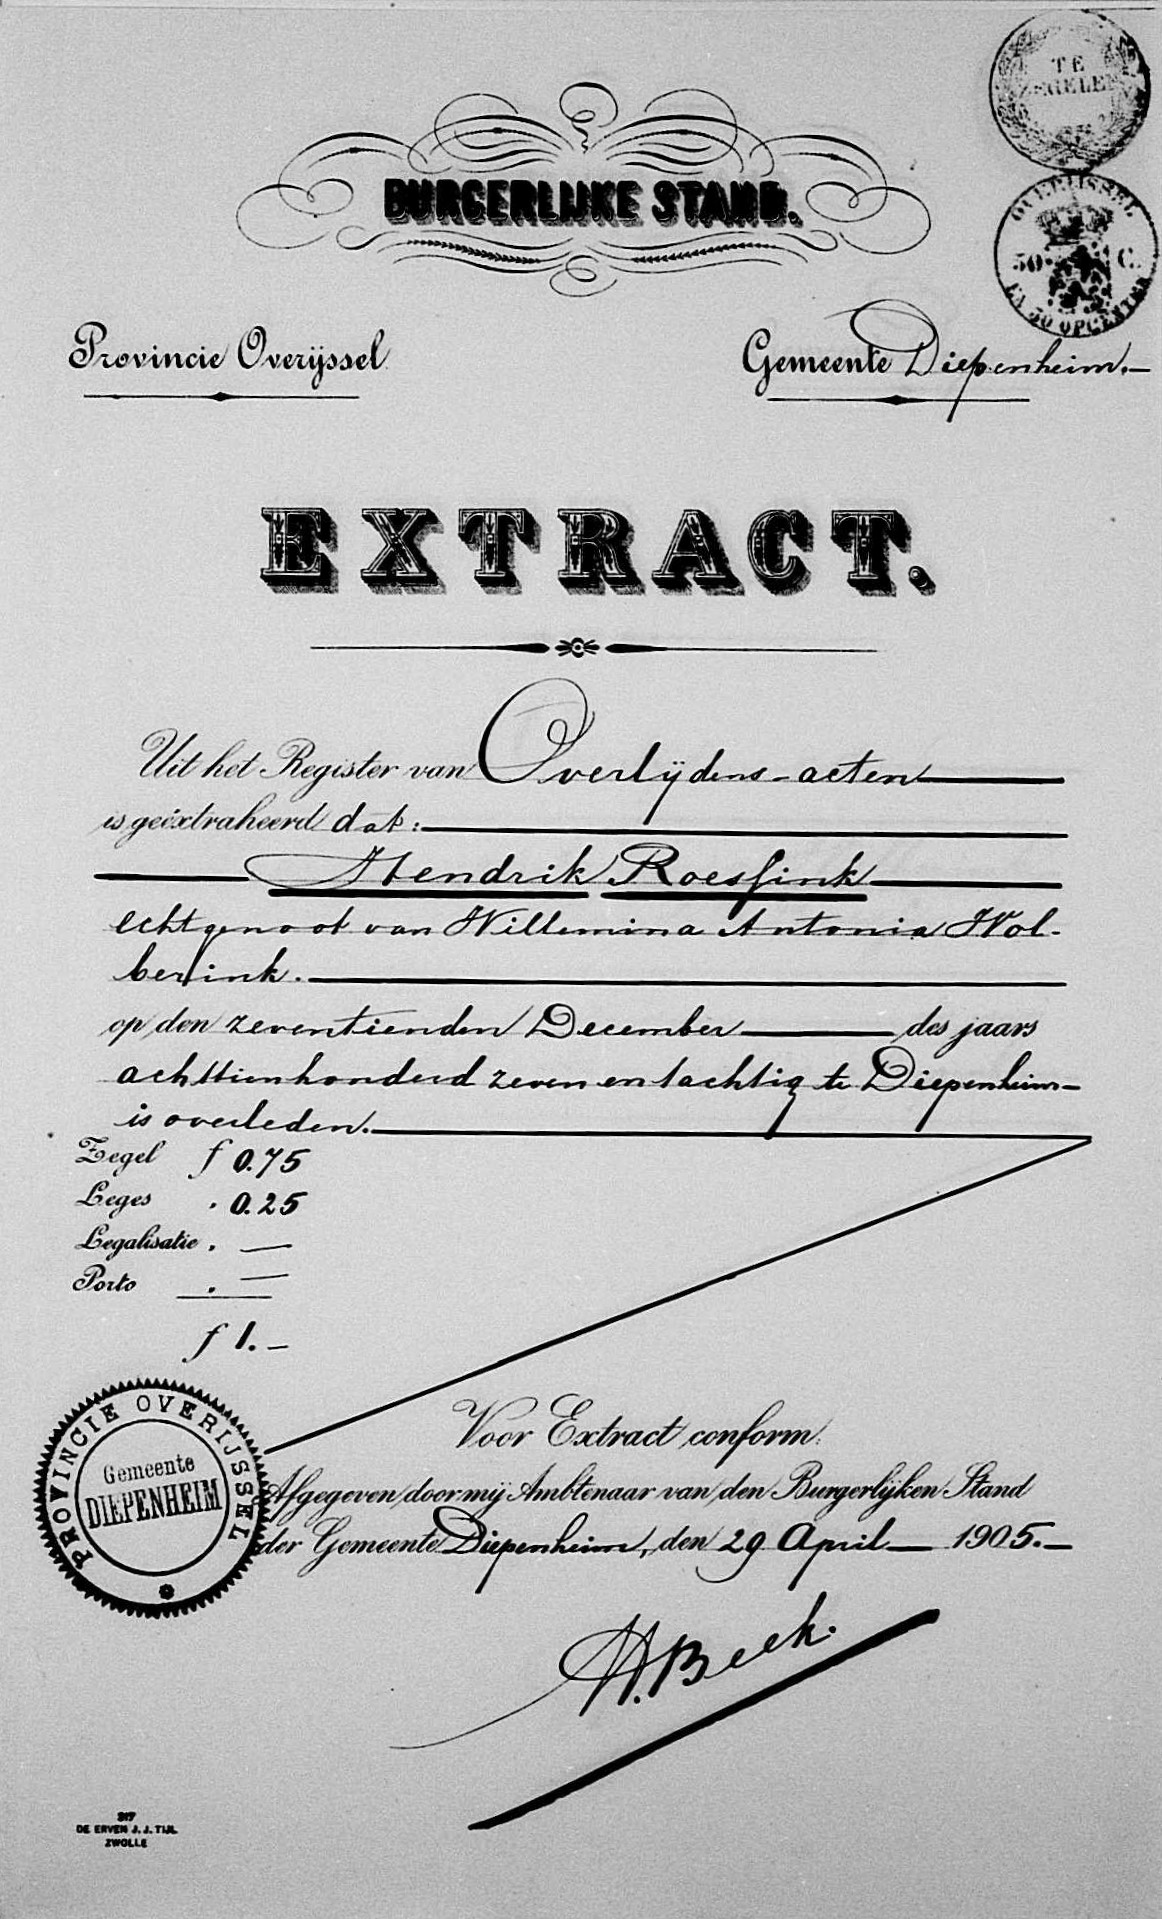 TE
ZEGELEN
BURGERLIJKE STAND.
OVERIJSSEL
50 C.
EN 50 OPCENTEN
Provincie Overijssel
Gemeente Diepenheim.—
EXTRACT.
Uit het Register van Overlijdens-acten
is geëxtraheerd dat:
Hendrik Roesfink
echtgenoot van Willemina Antonia Wol-
berink.
op den zeventienden December des jaars
achttienhonderd zeven en tachtig te Diepenheim—
is overleden.
Zegel f 0.75
Leges . 0.25
Legalisatie . —
Porto . —
f 1.—
PROVINCIE OVERIJSSEL
Gemeente
DIEPENHEIM
Voor Extract conform.
Afgegeven door mij Ambtenaar van den Burgerlijken Stand
der Gemeente Diepenheim, den 29 April — 1905.—
H. Beek.
317
DE ERVEN J. J. TIJL
ZWOLLE